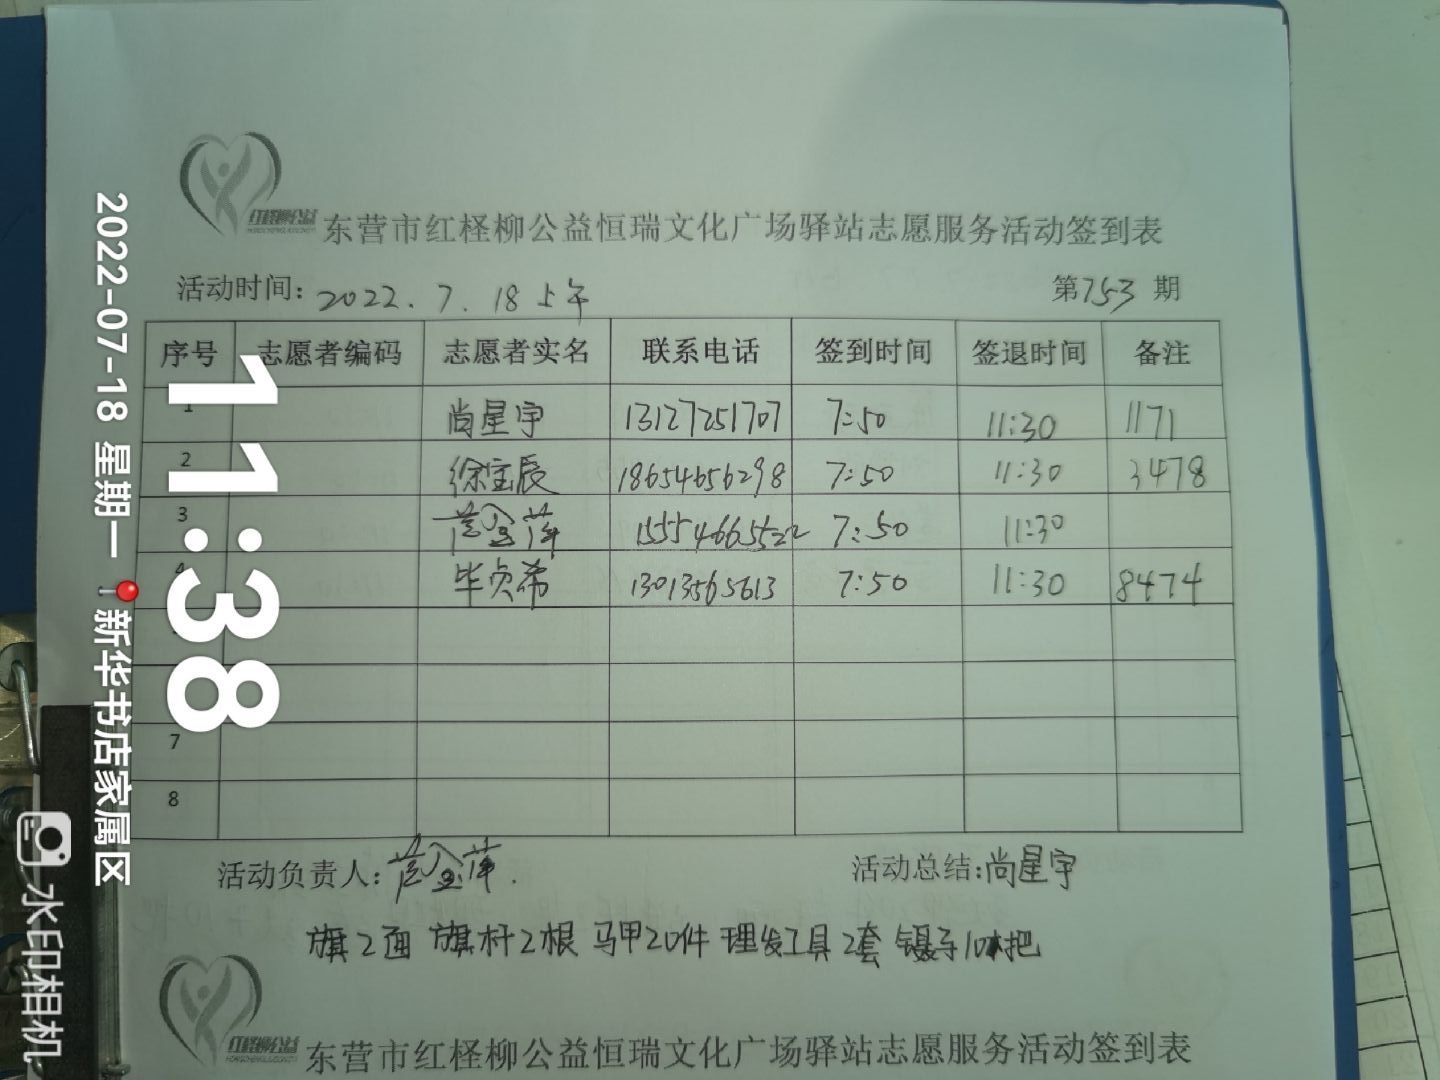 红柽柳公益
东营市红柽柳公益恒瑞文化广场驿站志愿服务活动签到表
活动时间：2022.7.18上午 第753期
序号 志愿者编码 志愿者实名 联系电话 签到时间 签退时间 备注
1 尚星宇 13127251707 7:50 11:30 1171
2 徐宝辰 18654656298 7:50 11:30 3478
3 15554665522 7:50 11:30
4 毕贞希 13013565613 7:50 11:30 8474
7
8
活动负责人： 活动总结:尚星宇
旗2面 旗杆2根 马甲20件 理发工具2套 镊子10把
红柽柳公益
东营市红柽柳公益恒瑞文化广场驿站志愿服务活动签到表
11:38
2022-07-18 星期一 新华书店家属区
水印相机